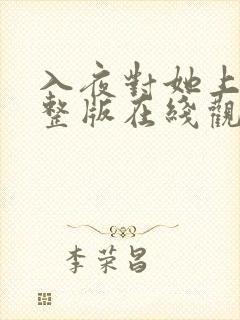 入夜對她上
整版在綫觀
李荣昌